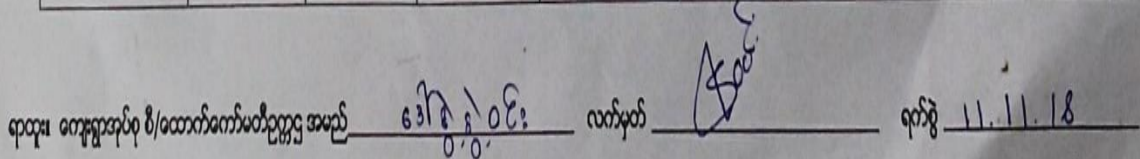 ရာထူး၊ ကျေးရွာအုပ်စု စီ/ထောက်ကော်မတီဥက္ကဋ္ဌ အမည် ဒေါ်နွဲ့နွဲ့ဝင်း လက်မှတ် ရက်စွဲ 11.11.18